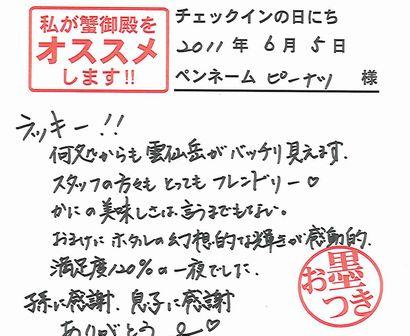 私が蟹御殿を
オススメ
します!!
チェックインの日にち
2011年6月5日
ペンネーム ピーナツ 様
ラッキー!!
何処からも雲仙岳がバッチリ見えます.
スタッフの方々もとってもフレンドリー♡
かにの美味しさは言うまでもない。
おまけにホタルの幻想的な輝きが感動的.
満足度120%の一夜でした.
孫に感謝.息子に感謝
ありがとう〜♡
お墨つき